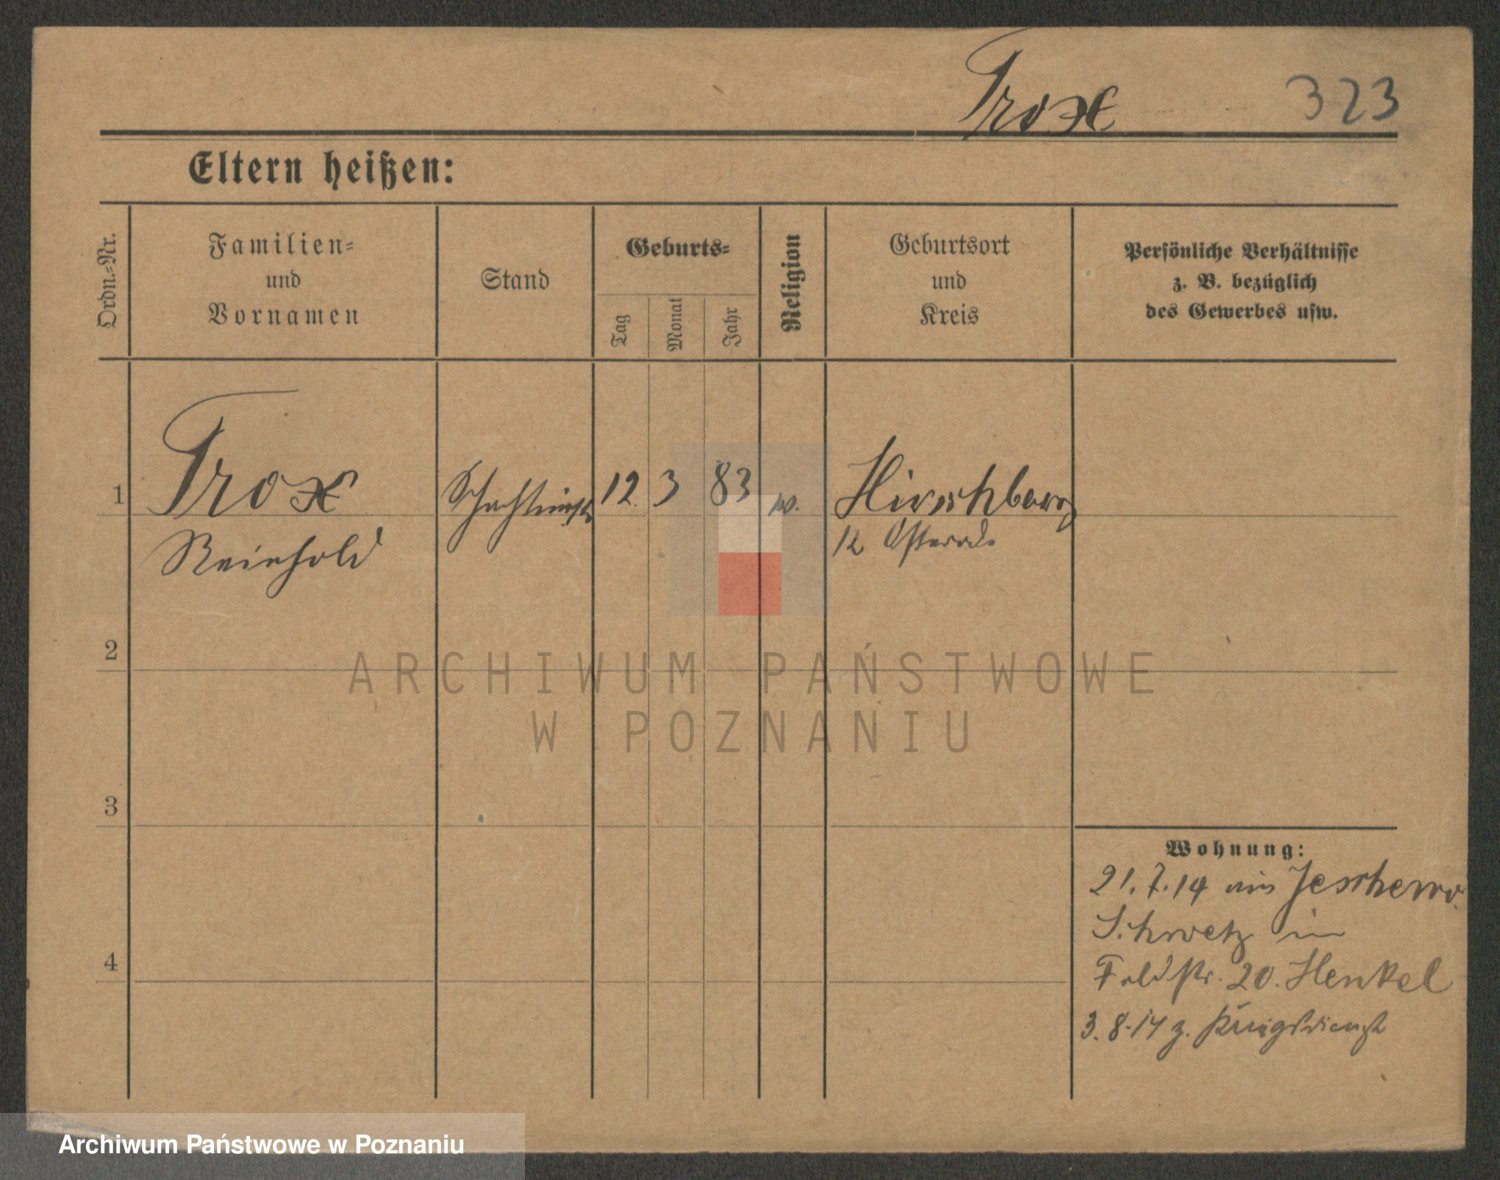 Trox 323
Eltern heißen:
Ordn.-Nr.
Familien-
und
Vornamen
Stand
Geburts-
Tag
Monat
Jahr
Religion
Geburtsort
und
Kreis
Persönliche Verhältnisse
z. B. bezüglich
des Gewerbes usw.
1 Trox Schachtmstr 12. 3 83 Hirschberg
Reinhold Kr. Osterode
2
3
4
Wohnung:
21. 7. 14 aus Jeschewo
Schwetz in
Feldstr. 20. Henkel
3. 8. 14 z. Kriegsdienst
ARCHIWUM PAŃSTWOWE
W POZNANIU
Archiwum Państwowe w Poznaniu